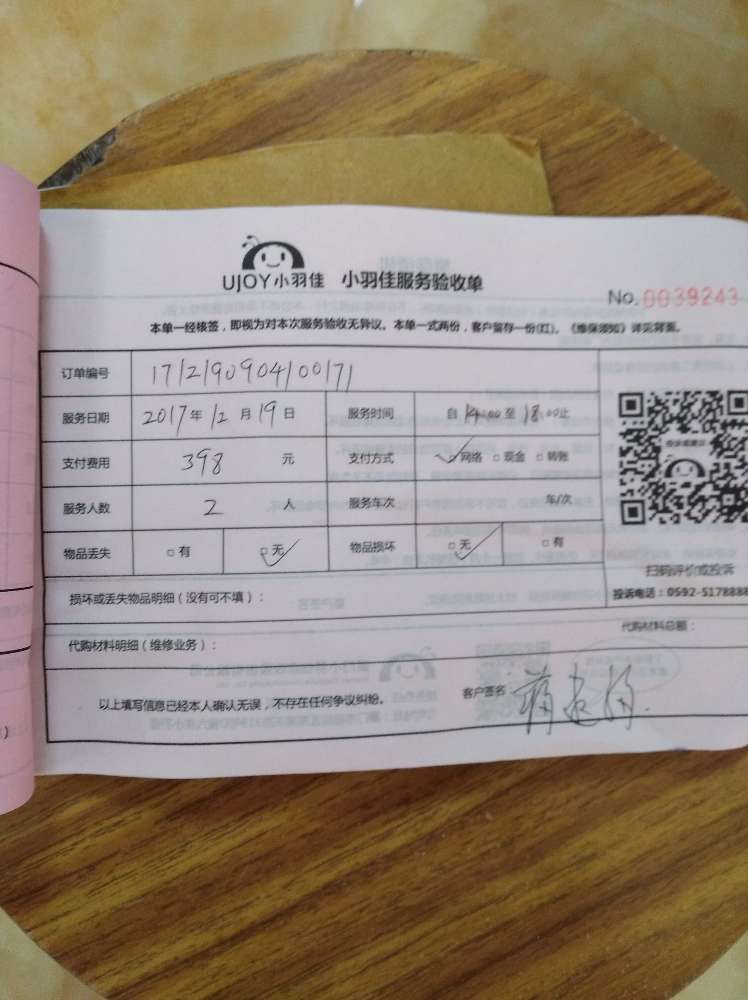 UJOY小羽佳 小羽佳服务验收单
No. 0039243
本单一经核签，即视为对本次服务验收无异议。本单一式两份，客户留存一份(红)。《维保须知》详见背面。
订单编号 1712190904100171
服务日期 2017年12月19日 服务时间 自14:00至18:00止
支付费用 398 元 支付方式 ☑网络 □现金 □转账
服务人数 2 人 服务车次 车/次
物品丢失 □有 ☑无 物品损坏 ☑无 □有
扫码评价或投诉
损坏或丢失物品明细（没有可不填）：
投诉电话：0592-5178888
代购材料明细（维修业务）：
代购材料总额：
以上填写信息已经本人确认无误，不存在任何争议纠纷。 客户签名